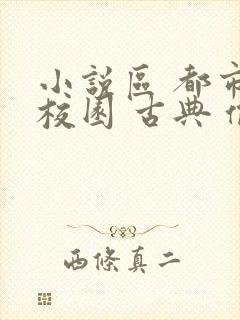 小說區 都市
校園 古典
西條真二